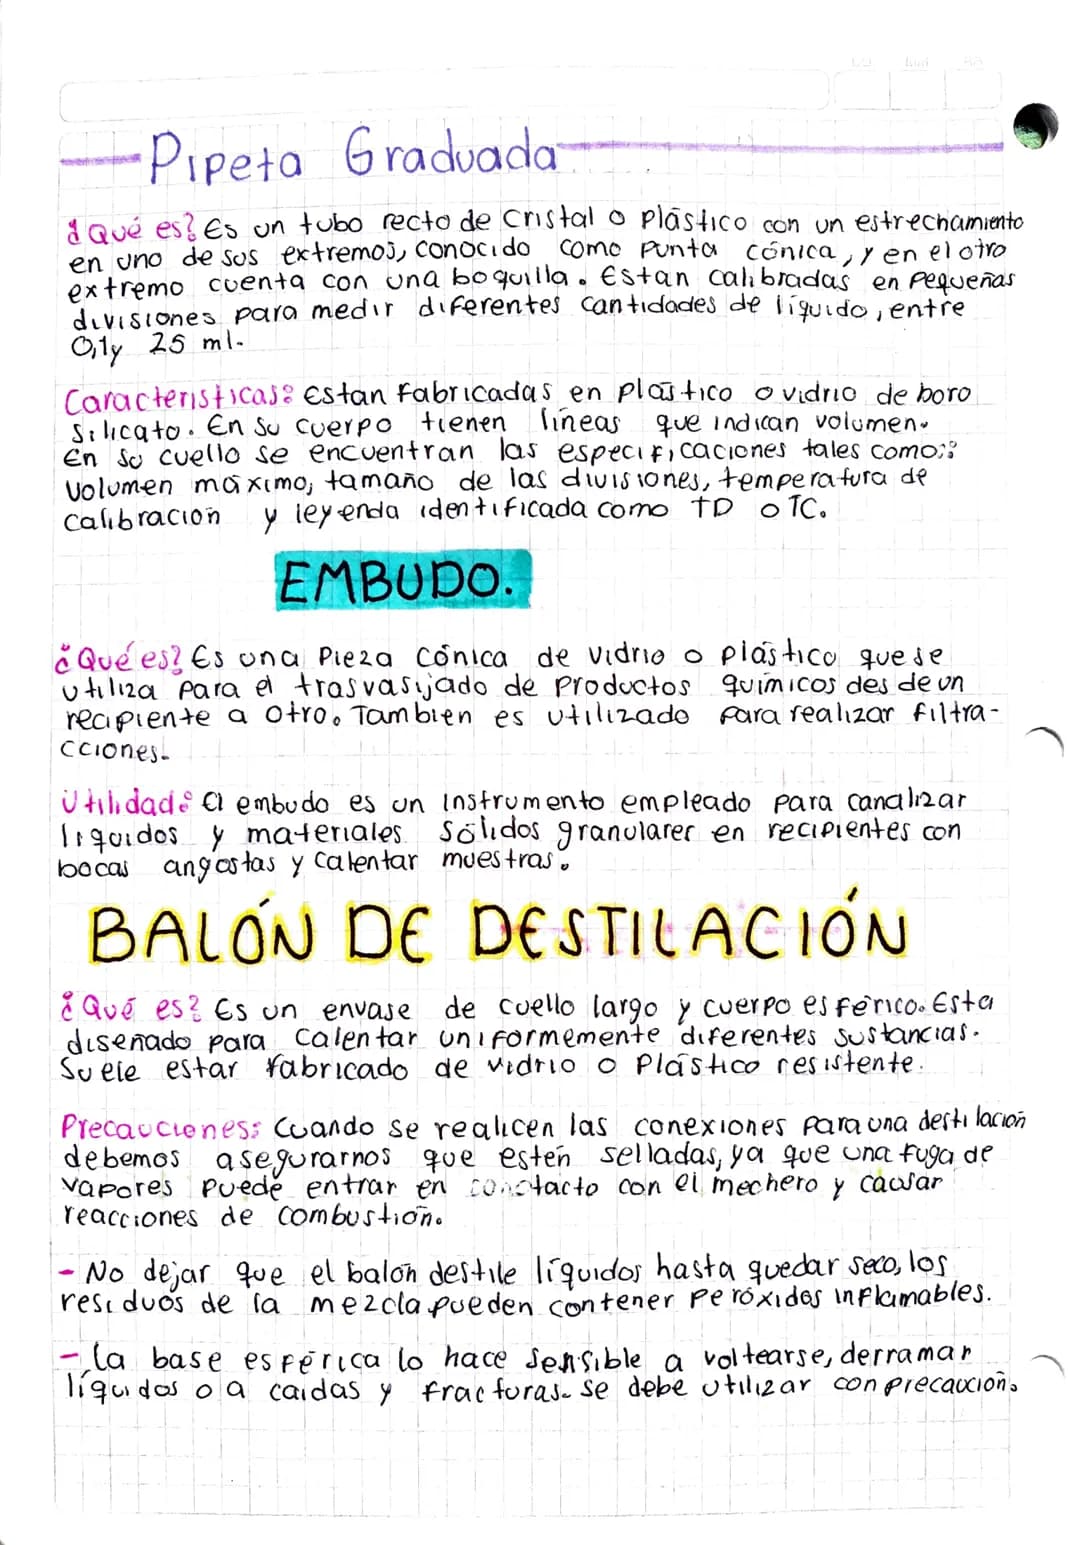 Pipeta Graduada
¿Qué es? Es un tubo recto de cristal o plástico con un estrechamiento
en uno de sus extremos, conocido como punta cónica, y en el otro
extremo cuenta con una boquilla. Estan calibradas en pequeñas
divisiones para medir diferentes cantidades de líquido, entre
0,1 y 25 ml.
Caracteristicas: Estan fabricadas en plastico o vidrio de boro
silicato. En su cuerpo tienen líneas que indican volumen.
En su cuello se encuentran las especificaciones tales como:
volumen máximo, tamaño de las divisiones, temperatura de
calibracion y leyenda identificada como TD o TC.
EMBUDO.
¿Qué es? Es una pieza cónica de vidrio o plástico que se
utiliza para el trasvasijado de productos químicos desde un
recipiente a otro. Tambien es utilizado para realizar filtra-
cciones.
Utilidad: El embudo es un instrumento empleado para canalizar
liquidos y materiales sólidos granularer en recipientes con
bocas angostas y calentar muestras.
BALÓN DE DESTILACIÓN
¿Qué es? Es un envase de cuello largo y cuerpo esférico. Esta
diseñado para calentar uniformemente diferentes sustancias.
Suele estar fabricado de vidrio o plástico resistente.
Precauciones: Cuando se realicen las conexiones para una destilación
debemos asegurarnos que estén selladas, ya que una fuga de
vapores puede entrar en conctacto con el mechero y causar
reacciones de combustión.
- No dejar que el balón destile líquidos hasta quedar seco, los
residuos de la mezcla pueden contener peróxidos inflamables.
- la base esférica lo hace sensible a voltearse, derramar
líquidos o a caidas y fracturas. se debe utilizar con precaución.